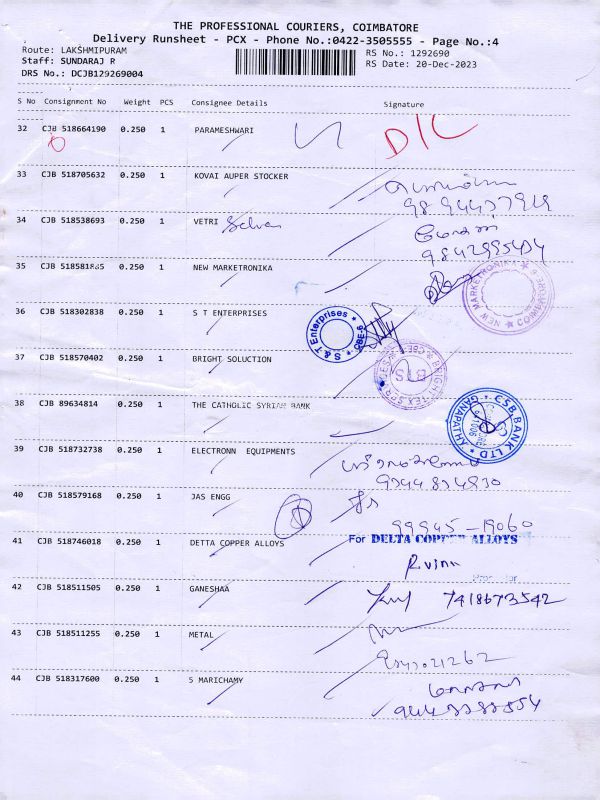 THE PROFESSIONAL COURIERS, COIMBATORE
Delivery Runsheet - PCX - Phone No.:0422-3505555 - Page No.:4
Route: LAKSHMIPURAM
RS No.: 1292690
Staff: SUNDARAJ R
RS Date: 20-Dec-2023
DRS No.: DCJB129269004
S No Consignment No Weight PCS Consignee Details Signature
32 CJB 518664190 0.250 1 PARAMESHWARI D/L
33 CJB 518705632 0.250 1 KOVAI AUPER STOCKER
34 CJB 518538693 0.250 1 VETRI Selvan
9842995404
35 CJB 518581885 0.250 1 NEW MARKETRONIKA
NEW MARKETRONIKA
36 CJB 518302838 0.250 1 S T ENTERPRISES
S & T Enterprises * CBE-6 *
37 CJB 518570402 0.250 1 BRIGHT SOLUCTION
38 CJB 89634814 0.250 1 THE CATHOLIC SYRIAN BANK
CSB BANK LTD * GANAPATHY *
39 CJB 518732738 0.250 1 ELECTRONN EQUIPMENTS
9344834830
40 CJB 518579168 0.250 1 JAS ENGG
99945-19060
41 CJB 518746018 0.250 1 DETTA COPPER ALLOYS
For DELTA COPPER ALLOYS
42 CJB 518511505 0.250 1 GANESHAA
7418673542
43 CJB 518511255 0.250 1 METAL
44 CJB 518317600 0.250 1 S MARICHAMY